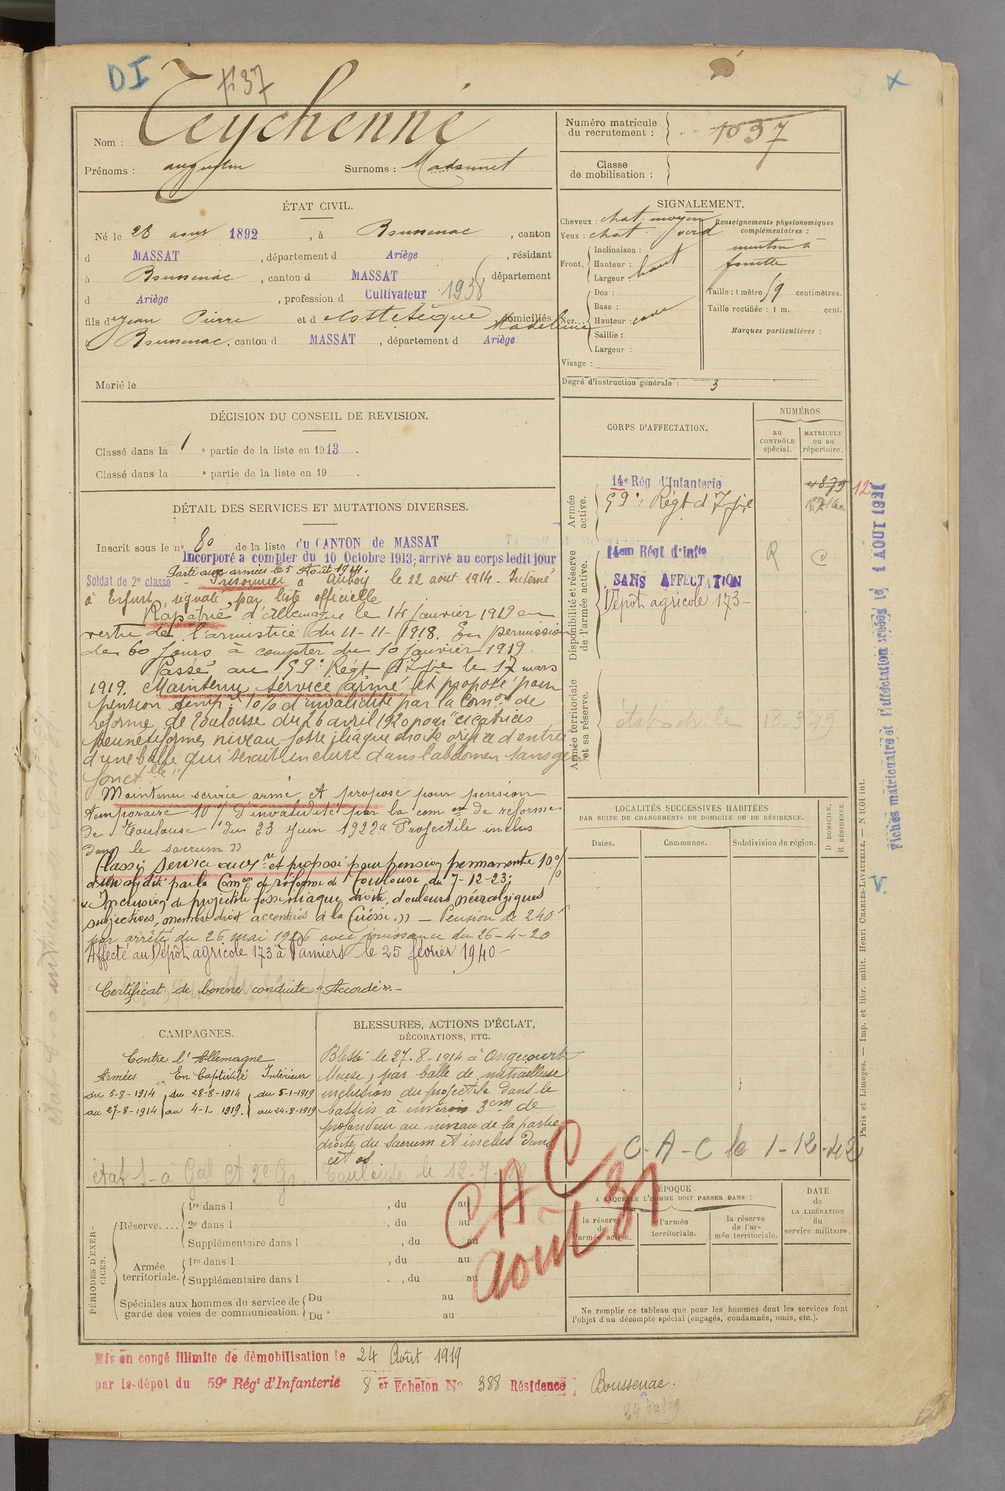 DI
1137
x
Nom : Teychenné
Prénoms : Augustin Surnoms :
Numéro matricule du recrutement : 1037
Classe de mobilisation :
ÉTAT CIVIL.
Né le 28 aout 1892, à Boussenac, canton
d MASSAT, département d Ariège, résidant
à Boussenac, canton d MASSAT, département
d Ariège, profession d Cultivateur 1938
fils d' Jean Pierre et d domiciliés
Madeleine
à Boussenac, canton d MASSAT, département d Ariège
Marié le
SIGNALEMENT.
Cheveux : chat. moyen
Yeux : chat.
Front. Inclinaison :
Hauteur : haut
Largeur :
Nez. Dos :
Base :
Hauteur :
Saillie :
Largeur :
Visage :
Renseignements physionomiques complémentaires :
menton à
fossette
Taille : 1 mètre 59 centimètres.
Taille rectifiée : 1 m. cent.
Marques particulières :
Degré d'instruction générale : 3
DÉCISION DU CONSEIL DE REVISION.
Classé dans la 1 e partie de la liste en 1913.
Classé dans la e partie de la liste en 19 .
DÉTAIL DES SERVICES ET MUTATIONS DIVERSES.
Inscrit sous le n° 80 de la liste du CANTON DE MASSAT
Incorporé a compter du 10 Octobre 1913; arrivé au corps ledit jour
Parti aux armées le 5 Août 1914.
Soldat de 2e classe Prisonnier à le 22 aout 1914 - Interné
à Erfurt, signalé par liste officielle
Rapatrié d'Allemagne le 14 Janvier 1919 en
vertu de l'armistice du 11-11-1918. En permission
de 60 jours à compter du 10 janvier 1919.
Passé au 59e Régt d'Ifie le 17 mars
1919. Maintenu service armé et proposé pour
pension temp. 10% d'invalidité par la Comon de
reforme de Toulouse du 26 avril 1920 pour "cicatrices
niveau fosse iliaque droite orifice d'entrée
d'une balle qui serait incluse dans l'abdomen sans gêne
fonctlle"
Maintenu service armé et proposé pour pension
temporaire 10% d'invalidité par la com on de reforme
de Toulouse du 23 Juin 1922 "Projectile inclus
dans le sacrum"
Classé Service auxre et proposé pour pension permanente 10%
d'invalidité par la Comon de réforme de Toulouse du 7-12-23:
"Inclusion de projectile fosse iliaque droite, douleurs névralgiques
subjectives, membre droit accentuées à la pression" - Pension de 240f
par arrêté du 26 mai 1926 avec jouissance du 26-4-20
Affecté au Dépôt agricole 173 à Pamiers le 25 février 1940 -
Certificat de bonne conduite "Accordé" -
CORPS D'AFFECTATION.
NUMÉROS
AU CONTRÔLE spécial.
MATRICULE ou au répertoire.
Armée active.
14e Rég d'Infanterie 4879 12
59e Régt d'Ifie
Disponibilité et réserve de l'armée active.
14em Régt d'Infie
SANS AFFECTATION
Dépôt agricole 173 -
Armée territoriale et sa réserve.
LOCALITÉS SUCCESSIVES HABITÉES
PAR SUITE DE CHANGEMENTS DE DOMICILE OU DE RÉSIDENCE.
Dates. Communes. Subdivision de région. D DOMICILE. R RÉSIDENCE.
V.
Paris et Limoges. — Imp. et libr. milit. Henri CHARLES-LAVAUZELLE.
CAMPAGNES.
Contre l'Allemagne
Armées En Captivité Intérieur
du 5-8-1914 du 28-8-1914 du 5-1-1919
au 27-8-1914 au 4-1-1919. au 24-8-1919
BLESSURES, ACTIONS D'ÉCLAT,
DÉCORATIONS, ETC.
Blessé le 27-8-1914 à Angecourt
Meuse, par balle de mitrailleuse
inclusion du projectile dans le
bassin à environ 3cm de
profondeur au niveau de la partie
droite du sacrum et inclus dans
cet os.
C-A-C le 1-12-42
CAC
août 31
PÉRIODES D'EXERCICES.
Réserve.... 1re dans l , du au
2e dans l , du au
Supplémentaire dans l , du au
Armée territoriale. 1re dans l , du au
Supplémentaire dans l , du au
Spéciales aux hommes du service de garde des voies de communication. Du au
Du au
ÉPOQUE
A LAQUELLE L'HOMME DOIT PASSER DANS :
la réserve de l'armée active.
l'armée territoriale.
la réserve de l'armée territoriale.
DATE de LA LIBÉRATION du service militaire.
Ne remplir ce tableau que pour les hommes dont les services font
l'objet d'un décompte spécial (engagés, condamnés, omis, etc.).
Mis en congé illimité de démobilisation le 24 Août 1919
par le dépot du 59e Régt d'Infanterie 8 er Echelon N° 388 Résidence : Boussenac.